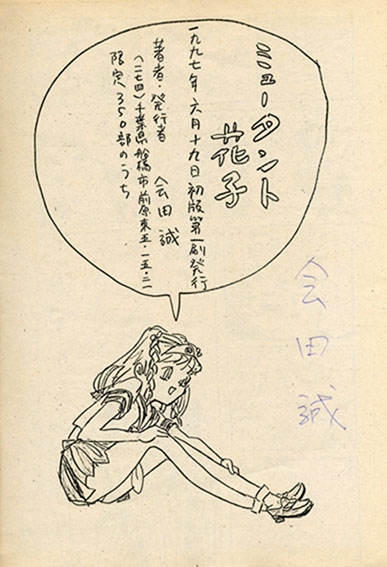 ミュータント
花子
一九九七年六月十九日初版第一刷発行
著者・発行者 会田誠
(二七四)千葉県船橋市前原東五・一五・二一
限定350部のうち
会田誠